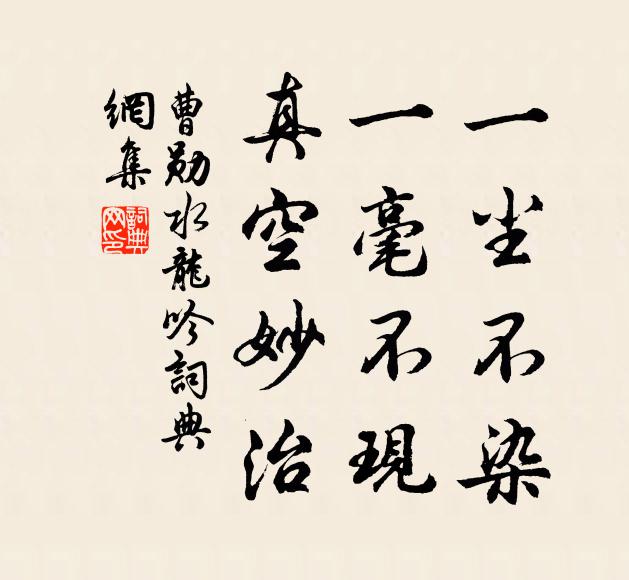 一尘不染
一毫不現
真空妙治
曹勋水龍吟詞典
網集
詞典
网印